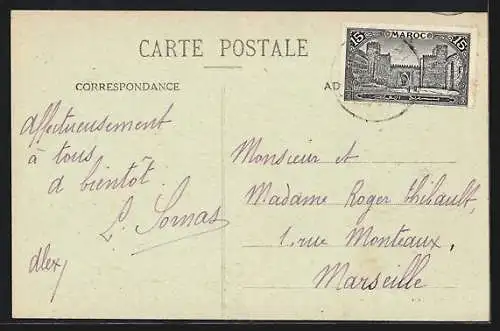 CARTE POSTALE
CORRESPONDANCE
AD
15 MAROC 15
affectueusement
à tous
a bientôt
L. Sornas
Alex
Monsieur et
Madame Roger Thibault,
1, rue Monteaux,
Marseille